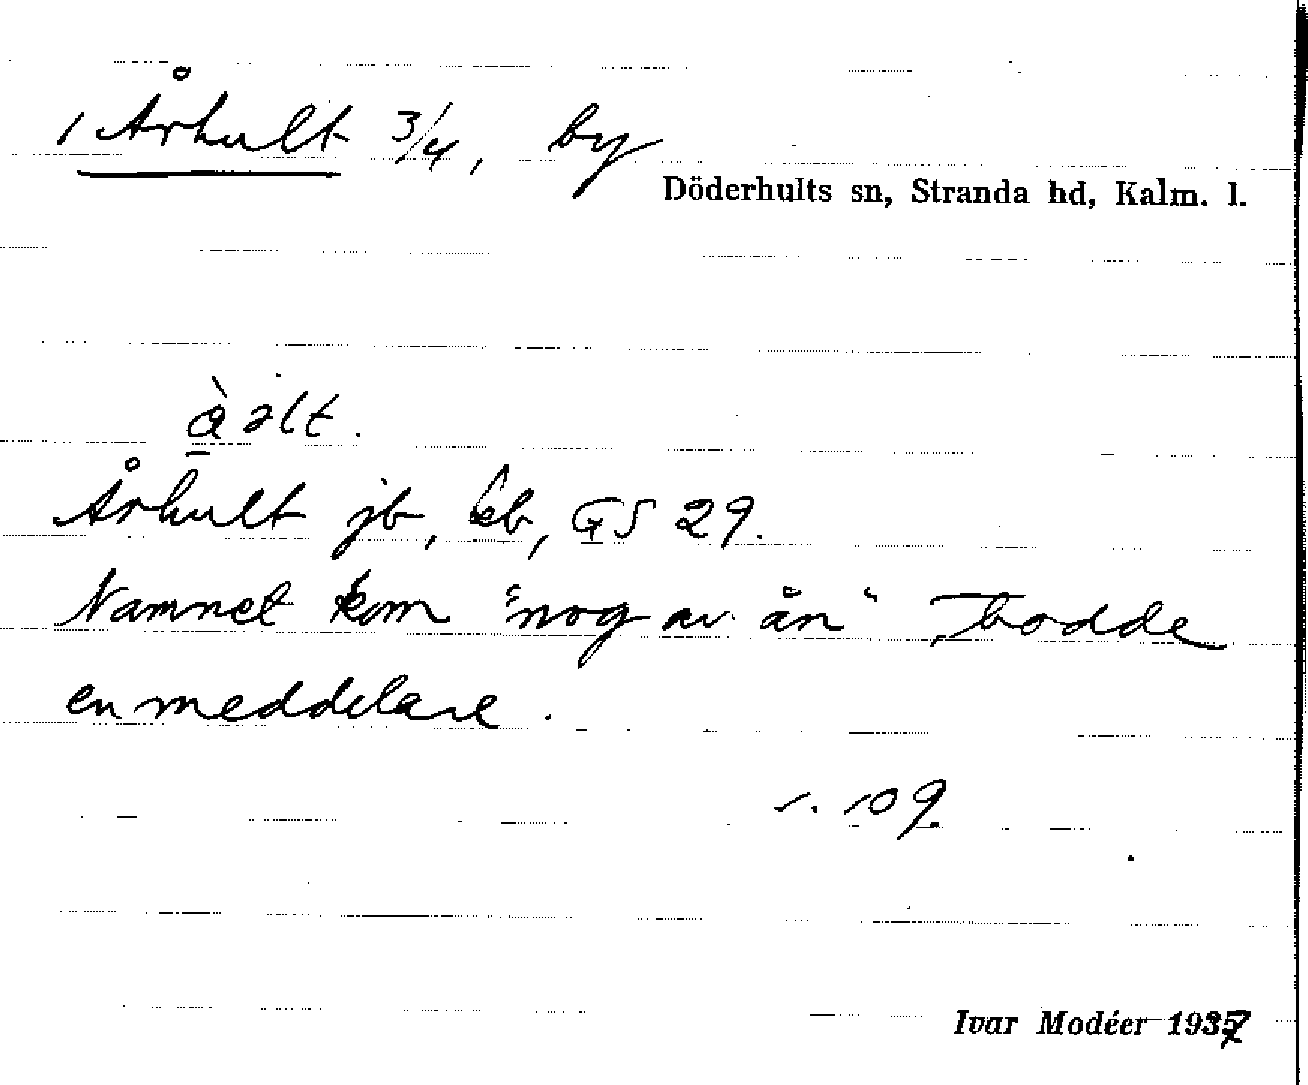 1 Århult 3/4, by
Döderhults sn, Stranda hd, Kalm. l.
Århult jb, kb, GS 29.
Namnet kom "nog av ån" trodde
en meddelare.
s. 109.
Ivar Modéer 1937